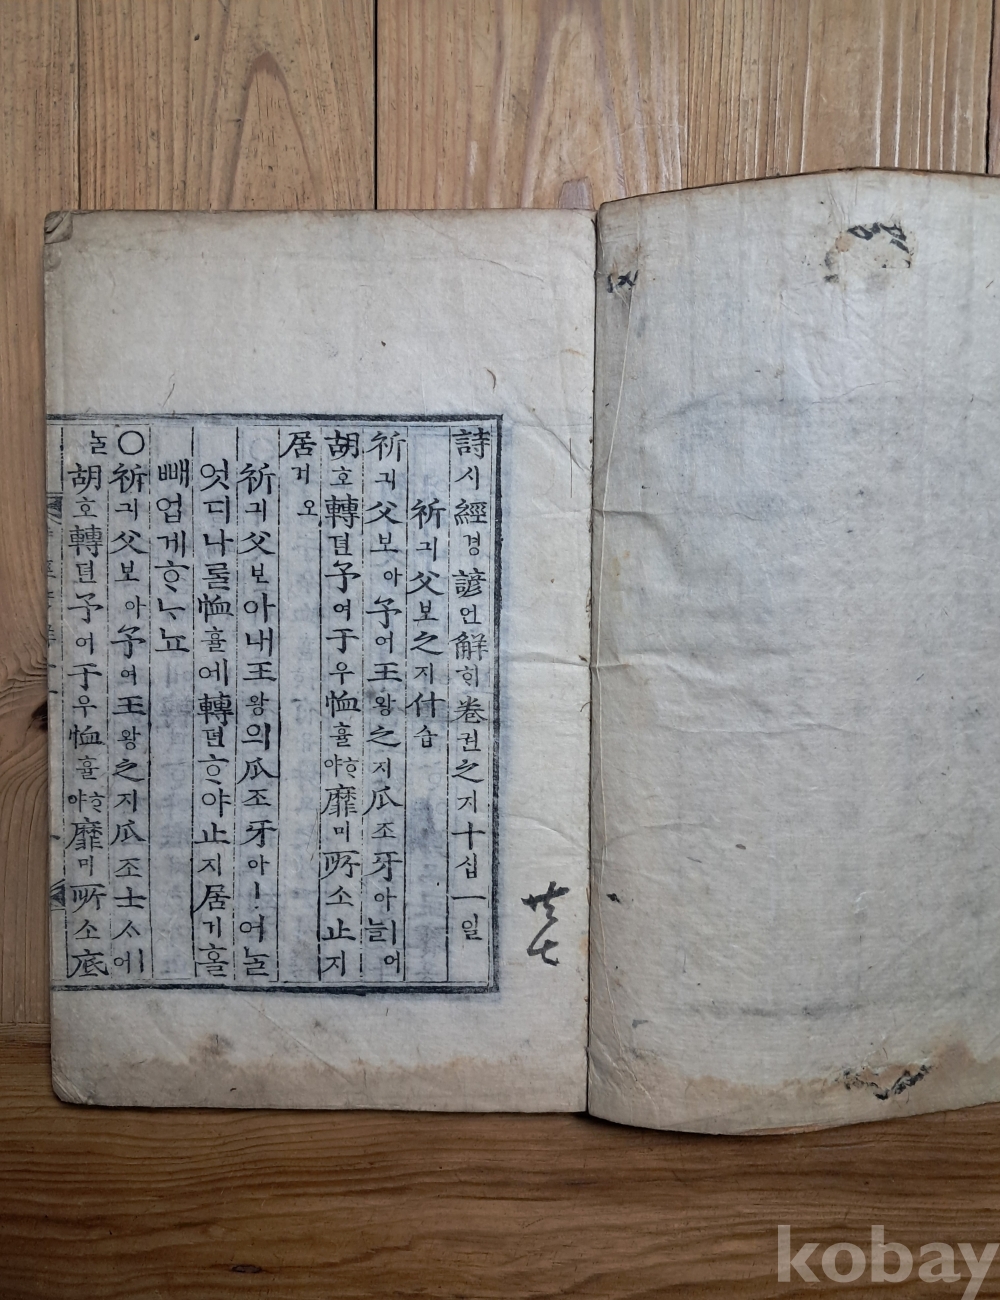 詩시經경諺언解ᄒᆡ卷권之지十십一일
祈긔父보之지什습
祈긔父보아予여王왕之지爪조牙아ㅣ어늘
胡호轉뎐予여于우恤휼ᄒᆞ야靡미所소止지
居거오
祈긔父보아내王왕의爪조牙아ㅣ여늘
엇디나ᄅᆞᆯ恤휼에轉뎐ᄒᆞ야止지居거홀
빼업게ᄒᆞᄂᆞ뇨
○祈긔父보아予여王왕之지爪조士ᄉᆞㅣ어
늘胡호轉뎐予여于우恤휼ᄒᆞ야靡미所소底
kobay